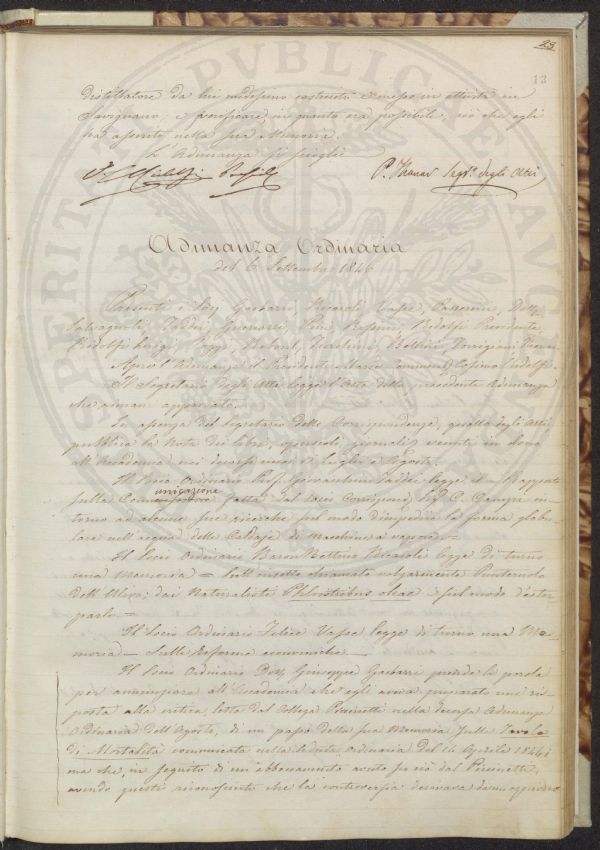 23
13
distillatore da lui medesimo costruito e messo in attività in
Savignano; e verificare in quanto era possibile, ciò che egli
ha asserito nella sua Memoria.
L'Adunanza si scioglie
P. Thouar Seg.º degli Atti
Adunanza Ordinaria
del 6 Settembre 1846
Presenti i Sig.
Salvagnoli, Taddei, Rossini, Ridolfi Presidente,
Ridolfi Luigi
Aprì l'Adunanza il Presidente Cosimo Ridolfi.
Il Segretario degli Atti legge l'Atto della precedente Adunanza
che rimane approvato.
In assenza del Segretario delle Corrispondenze, quello degli Atti
pubblica la Nota dei libri, opuscoli, giornali venuti in dono
all'Accademia nei decorsi mesi di Luglio e Agosto.
Il Socio Ordinario Prof. Gioacchino Taddei legge il Rapporto
unicazione
sulla Com fatta dal Socio Corrispond. in-
torno ad alcune sue ricerche sul modo d'impedire la forma globu-
lare nell'acqua delle Caldaje di Macchine a vapore. =
Il Socio Ordinario Baron Bettino Ricasoli legge di turno
una Memoria = Sull'insetto chiamato volgarmente Punteruolo
dell'Ulivo; dai Naturalisti Phloiotribus oleae e sul modo d'estir-
parlo. =
Il Socio Ordinario Felice Vasse legge di turno una Me-
moria = Sulle Riforme economiche. =
Il Socio Ordinario Dott. Giuseppe Gasbarri prende la parola
per annunziare all'Accademia che egli aveva preparato una ri-
sposta alla critica, letta dal Collega nella decorsa Adunanza
Ordinaria dell'Agosto, di un passo della sua Memoria sulle Tavole
di Mortalità comunicata nella seduta ordinaria del 14 Aprile 1844;
ma che, in seguito di un abboccamento avuto seco dal
avendo questi riconosciuto che la controversia derivava da un equivoco